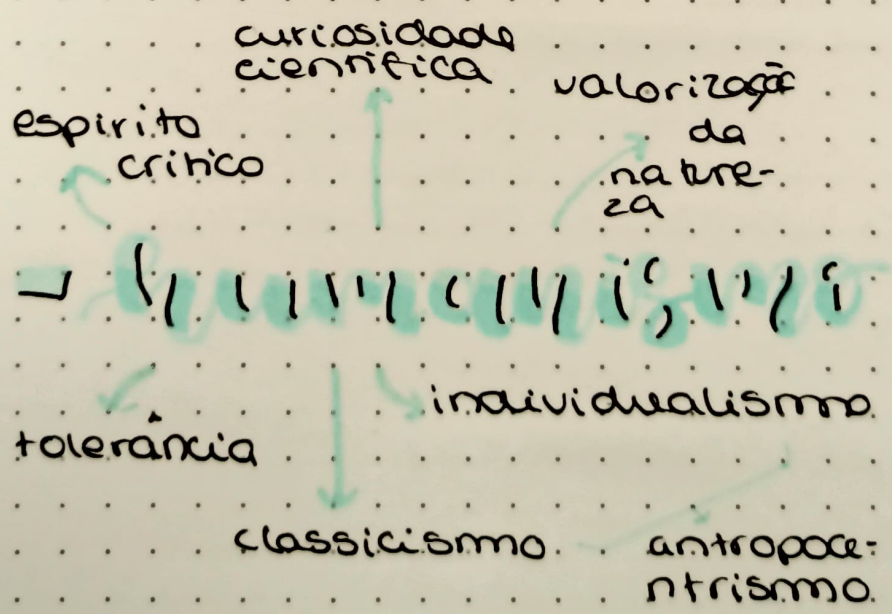 curiosidade
científica
valorização
da
nature-
za
espirito
crítico
- humanismo
individualismo
tolerância
classicismo
antropoce-
ntrismo